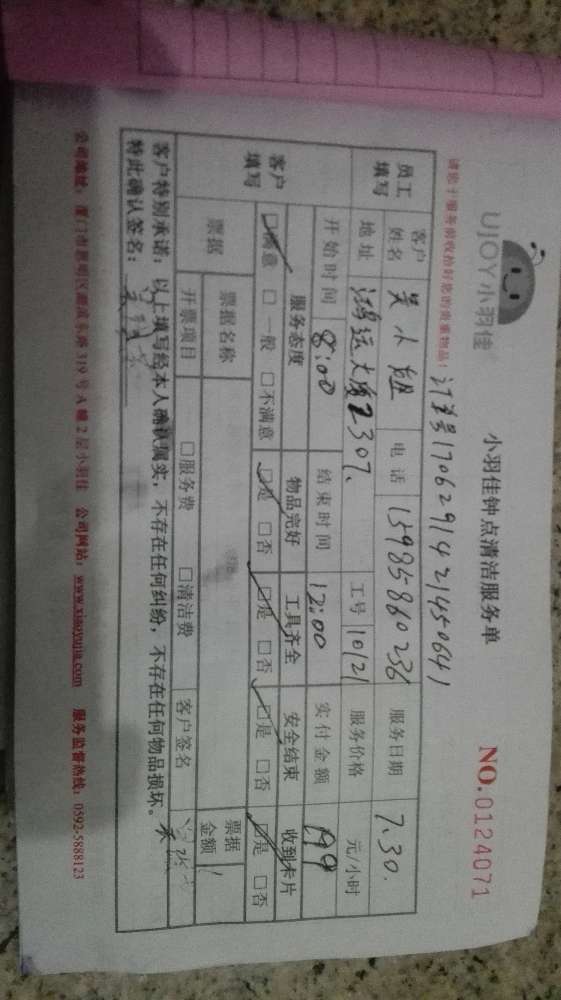 UJOY小羽佳
小羽佳钟点清洁服务单
NO.0124071
请您于服务前收拾好您的贵重物品!
订单号1706291421450641
员工填写
客户姓名 吴小姐 电话 15985860236 服务日期 7.30.
地址 鸿运大厦2307、 工号 10121 服务价格 元/小时
开始时间 8:00 结束时间 12:00 实付金额 199
客户填写
服务态度 物品完好 工具齐全 安全结束 收到卡片
☑满意 □一般 □不满意 ☑是 □否 ☑是 □否 ☑是 □否 ☑是 □否
票据 票据名称 票据金额
开票项目 □服务费 □清洁费 客户签名
客户特别承诺:以上填写经本人确认属实,不存在任何纠纷,不存在任何物品损坏。
特此确认签名:
公司地址:厦门市思明区湖滨东路319号A幢2层小羽佳 公司网站:www.xiaoyujia.com 服务监督热线:0592-5888123